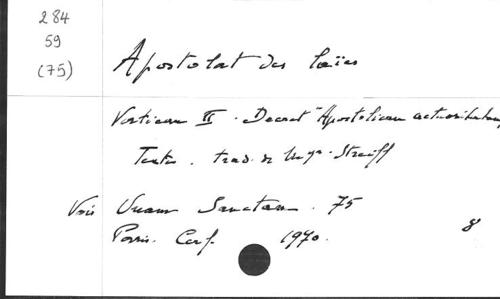 284
59
(75)
Apostolat des laïcs
Vatican II. Decret "Apostolicam actuositatem
Textes. trad. de Mgr. Streiff
Voir Unam Sanctam. 75
Paris. Cerf. 1970.
8